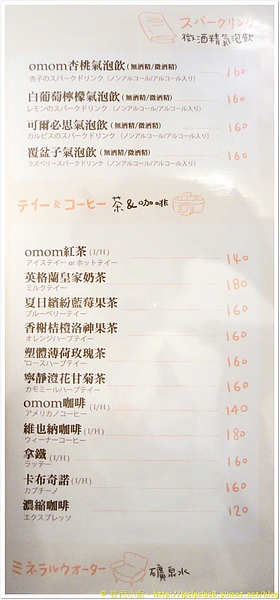 スパークリング
微酒精氣泡飲
omom杏桃氣泡飲(無酒精/微酒精) 160
杏子のスパークドリンク（ノンアルコール/アルコール入り）
白葡萄檸檬氣泡飲(無酒精/微酒精) 160
レモンのスパークドリンク（ノンアルコール/アルコール入り）
可爾必思氣泡飲(無酒精/微酒精) 160
カルピスのスパークドリンク（ノンアルコール/アルコール入り）
覆盆子氣泡飲(無酒精/微酒精) 160
ラズベリースパークドリンク（ノンアルコール/アルコール入り）
テイー&コーヒー 茶&咖啡
omom紅茶(I/H) 140
アイスティー or ホットテイー
英格蘭皇家奶茶 180
ミルクテイー
夏日繽紛藍莓果茶 160
ブルーベリーテイー
香榭桔橙洛神果茶 160
オレンジハーブテイー
塑體薄荷玫瑰茶 160
ローズハーブテイー
寧靜澄花甘菊茶 160
カモミールハーブテイー
omom咖啡(I/H) 140
アメリカノコーヒー
維也納咖啡(I/H) 180
ウィーナーコーヒー
拿鐵(I/H) 160
ラッテー
卡布奇諾(I/H) 160
カプチーノ
濃縮咖啡 120
エクスプレッソ
ミネラルウオーター 礦泉水